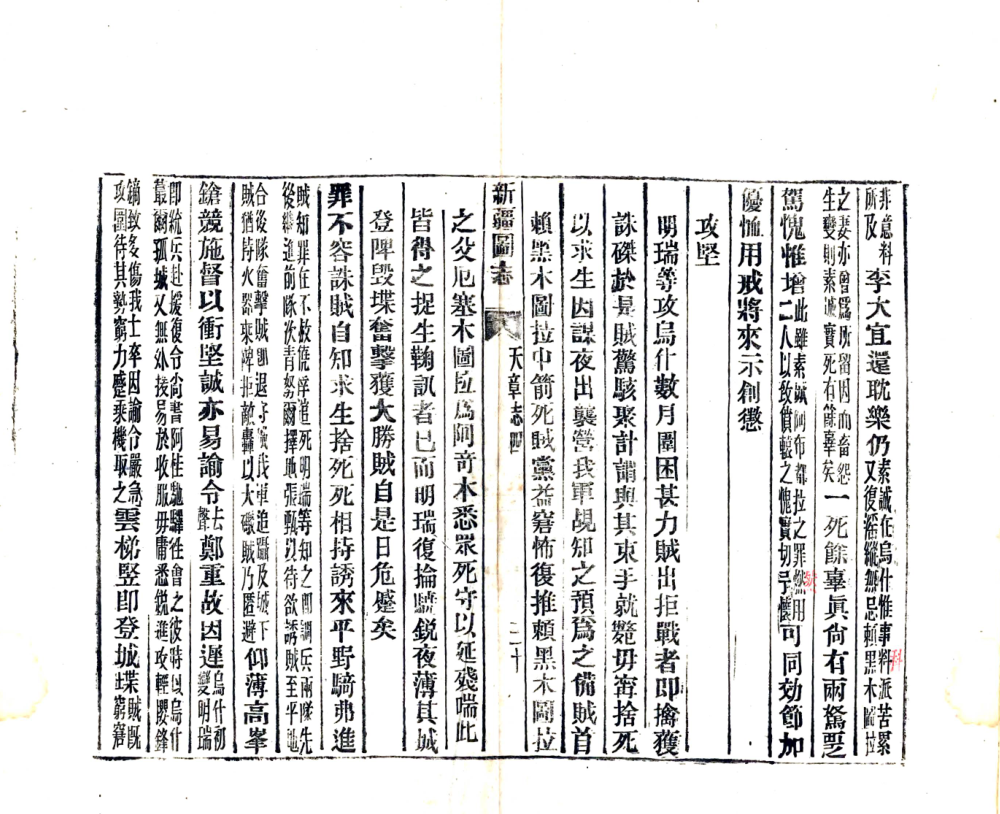 非意料所及李大宜還耽樂仍素誠在烏什惟事料派苦累又復淫縱無忌賴黑木圖拉
之妻亦曾為所留因而畜怨生變則素誠實死有餘辜矣一死餘辜眞尙有兩駑覂
駕愧惟增此雖素誠阿布都拉之罪然用二人以致僨轅之愧實切予懷可同効節加
優恤用戒將來示創懲
攻堅
明瑞等攻烏什數月圍困甚力賊出拒戰者即擒獲
誅磔於是賊驚駭聚計謂與其束手就斃毋甯捨死
以求生因謀夜出襲營我軍覘知之預爲之備賊首
賴黑木圖拉中箭死賊黨益窘怖復推賴黑木圖拉
新疆圖志 天章志四 二十
之父厄塞木圖拉爲阿奇木悉眾死守以延殘喘此
皆得之捉生鞫訊者已而明瑞復掄驍鋭夜薄其城
登陴毀堞奮擊獲大勝賊自是日危蹙矣
罪不容誅賊自知求生捨死死相持誘來平野騎弗進
賊知罪在不赦僥倖逭死明瑞等知之即調兵兩隊先後繼進前隊伏青努爾擇地張甄以待欲誘賊至平地
合後隊奮擊賊即退守竄我軍追躡及城下賊猶持火器乘陴拒敵轟以大礮賊乃匿避仰薄高峯
鎗競施督以衝堅誠亦易諭令去聲鄭重故因遲烏什初變明瑞
即統兵赴援復令尙書阿桂馳驛往會之彼時以烏什蕞爾孤城又無外接易於收服毋庸悉鋭進攻輕攖鋒
鏑致多傷我士卒因諭令嚴急攻圍待其勢窮力蹙乘機取之雲梯竪即登城堞賊旣窮窘
科